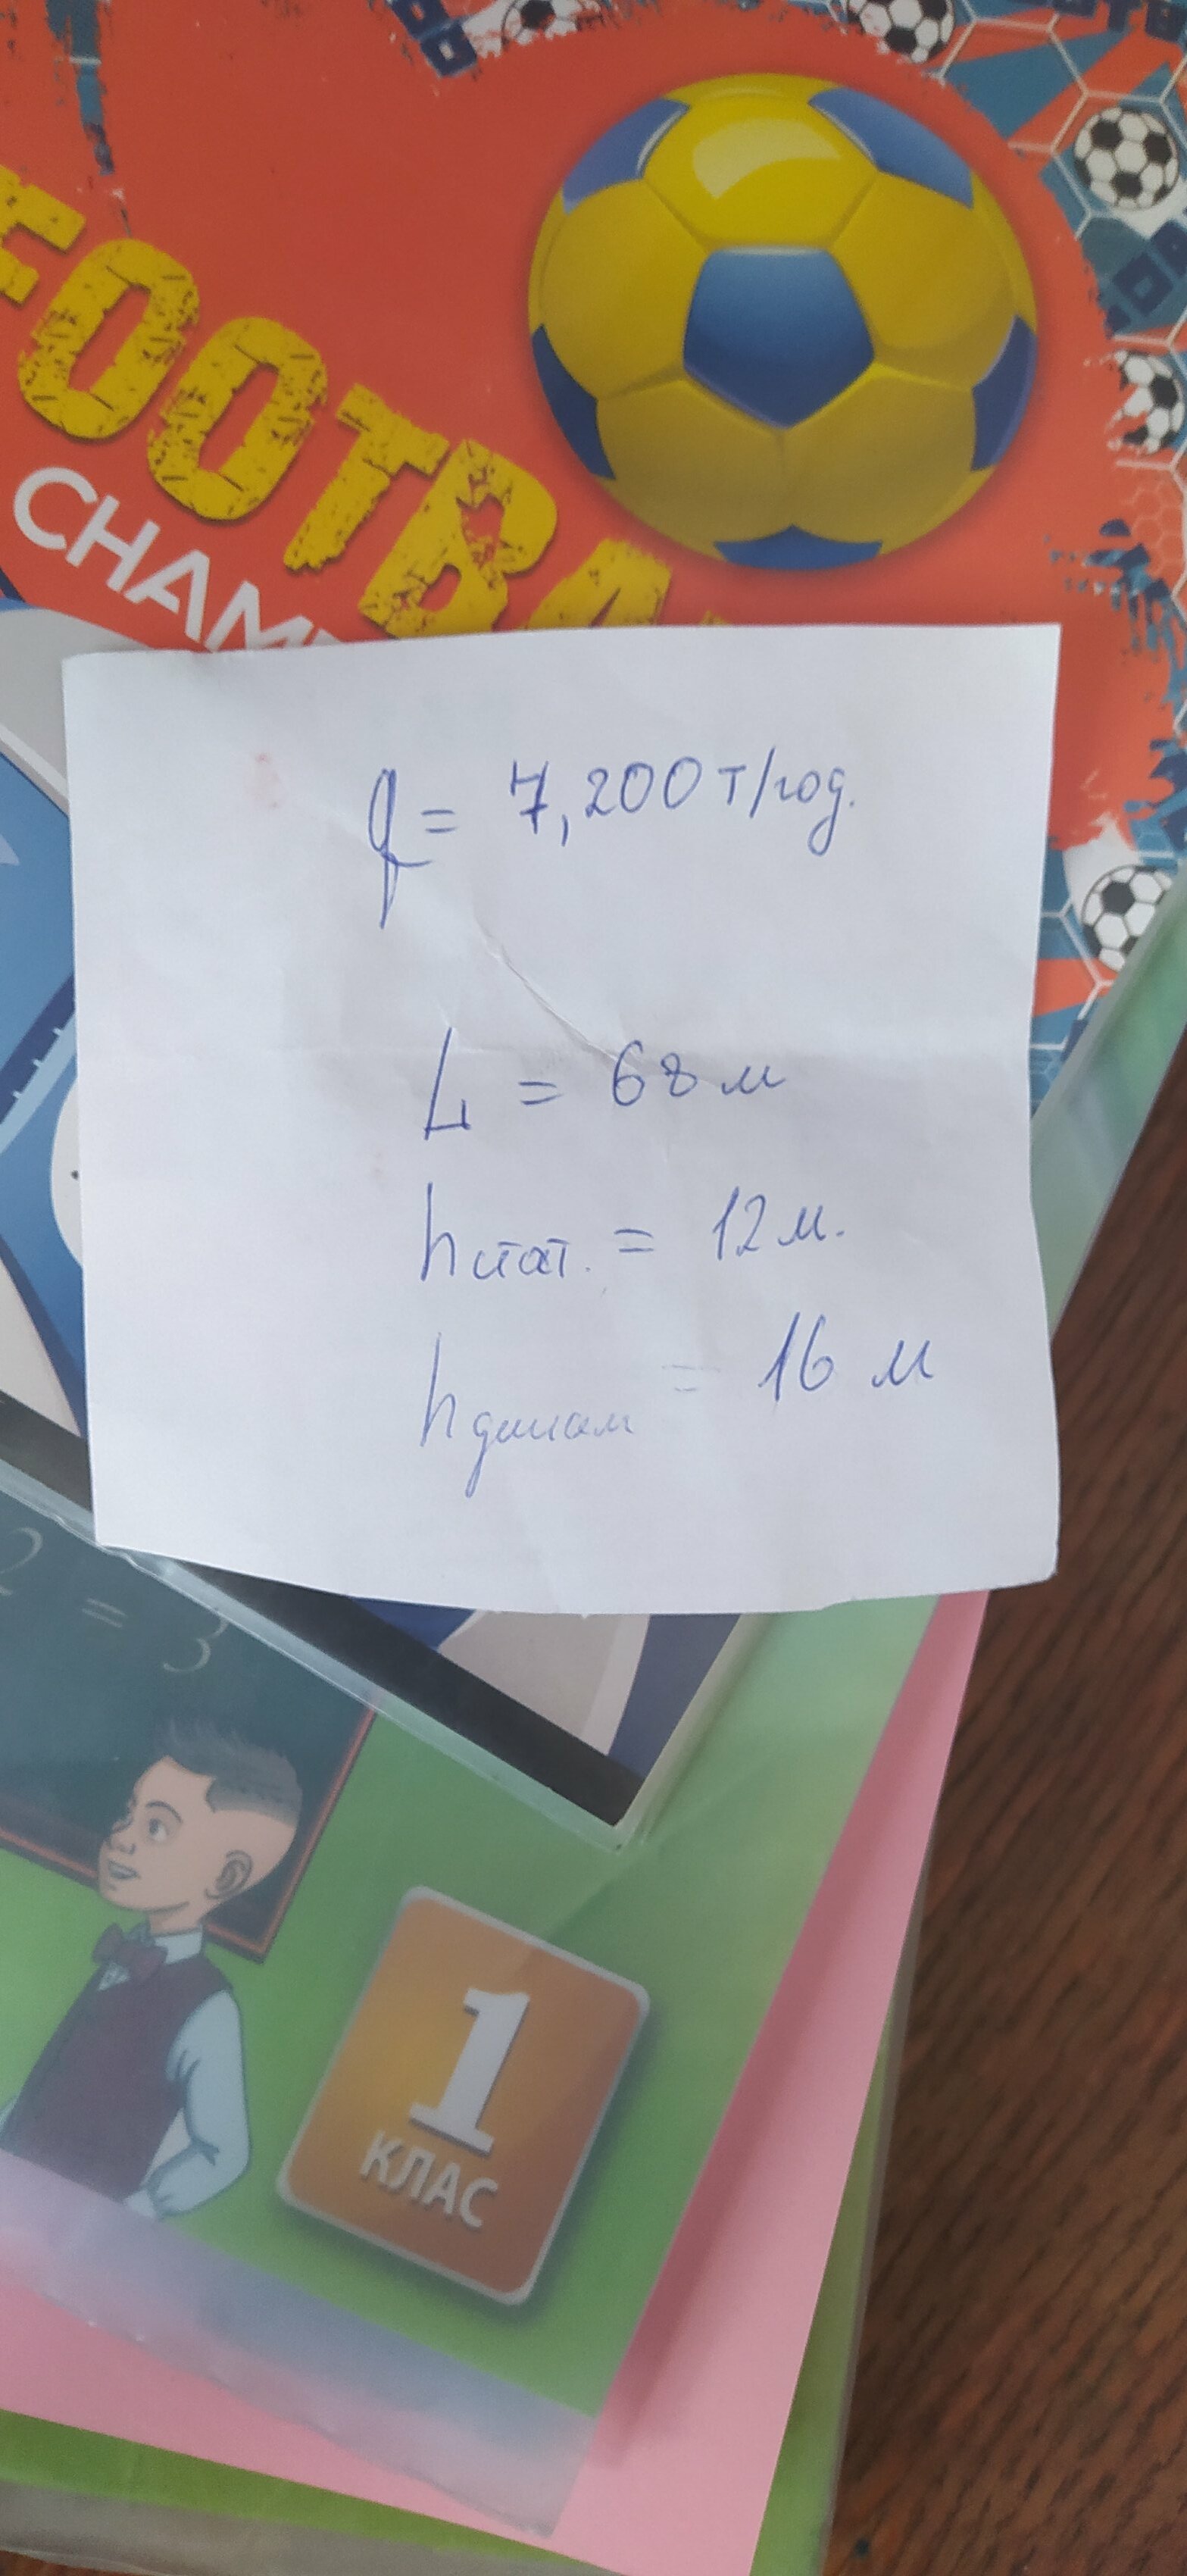 FOOTBA
CHAM
q = 7,200 т/год.
L = 68 м
h стат. = 12 м.
h динам = 16 м
2 = 3
1
КЛАС